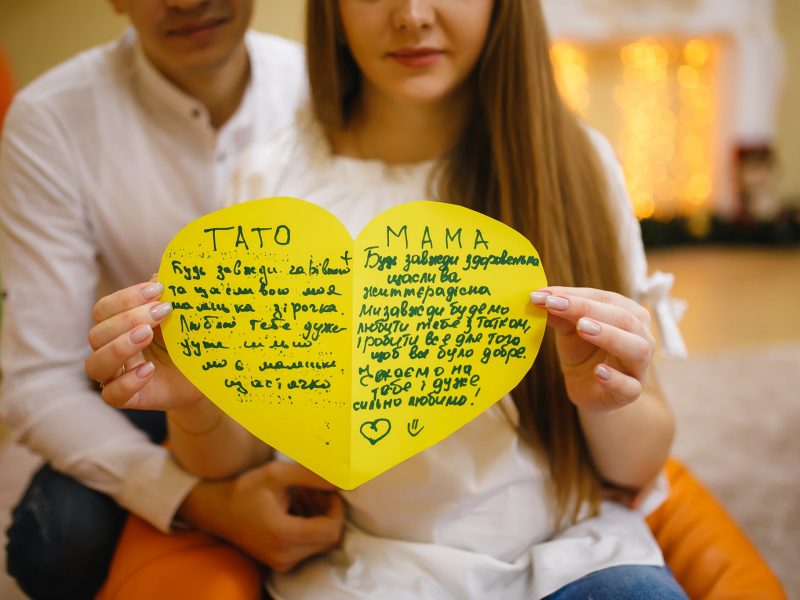 ТАТО
Будь завжди чарівною
та щасливою моя
маленька зірочка.
Люблю тебе дуже
дуже сильно
моє маленьке
щастячко
МАМА
Будь завжди здоровенька
щаслива
життєрадісна
ми завжди будемо
любити тебе з татком,
і робити все для того
щоб все було добре.
Чекаємо на
тебе і дуже
сильно любимо!